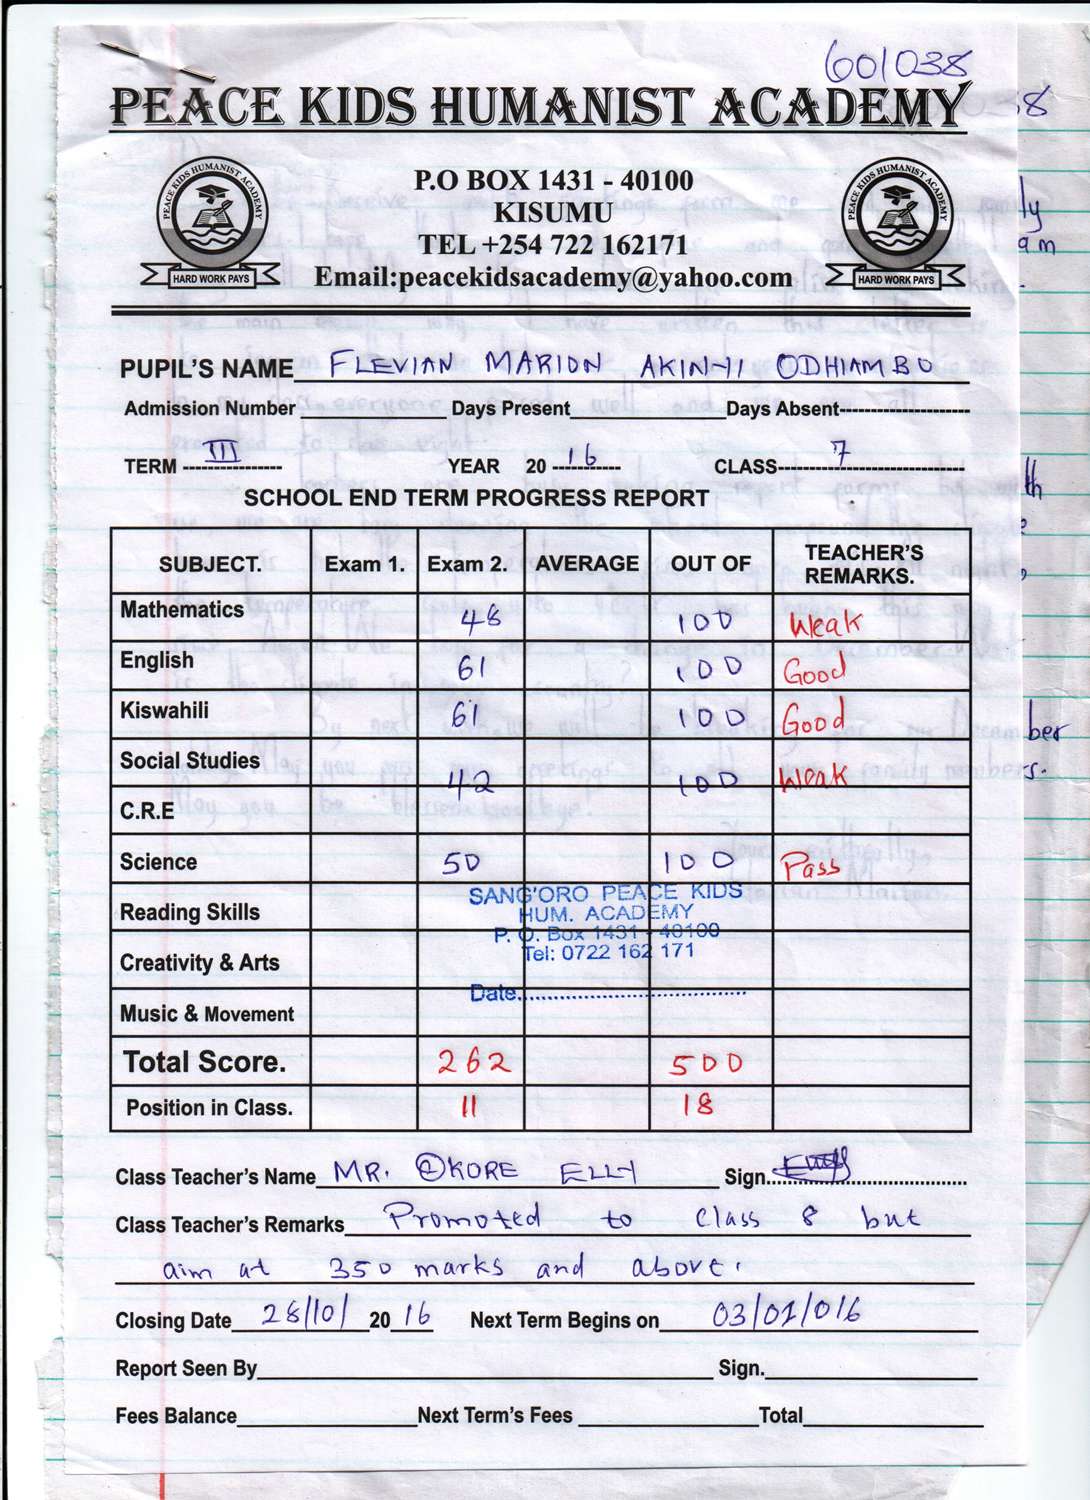 601038
PEACE KIDS HUMANIST ACADEMY
PEACE KIDS HUMANIST ACADEMY
HARD WORK PAYS
P.O BOX 1431 - 40100
KISUMU
TEL +254 722 162171
Email:peacekidsacademy@yahoo.com
PEACE KIDS HUMANIST ACADEMY
HARD WORK PAYS
PUPIL'S NAME FLEVIAN MARION AKINYI ODHIAMBO
Admission Number Days Present Days Absent
TERM III YEAR 2016 CLASS 7
SCHOOL END TERM PROGRESS REPORT
SUBJECT. Exam 1. Exam 2. AVERAGE OUT OF TEACHER'S REMARKS.
Mathematics 48 100 Weak
English 61 100 Good
Kiswahili 61 100 Good
Social Studies 42 100 Weak
C.R.E
Science 50 100 Pass
SANG'ORO PEACE KIDS
HUM. ACADEMY
P. O. Box 1431 - 40100
Tel: 0722 162 171
Date
Reading Skills
Creativity & Arts
Music & Movement
Total Score. 262 500
Position in Class. 11 18
Class Teacher's Name MR. OKORE ELLY Sign
Class Teacher's Remarks Promoted to class 8 but
aim at 350 marks and above.
Closing Date 28/10/ 2016 Next Term Begins on 03/01/016
Report Seen By Sign.
Fees Balance Next Term's Fees Total
8
ly
am
th
ber
s.